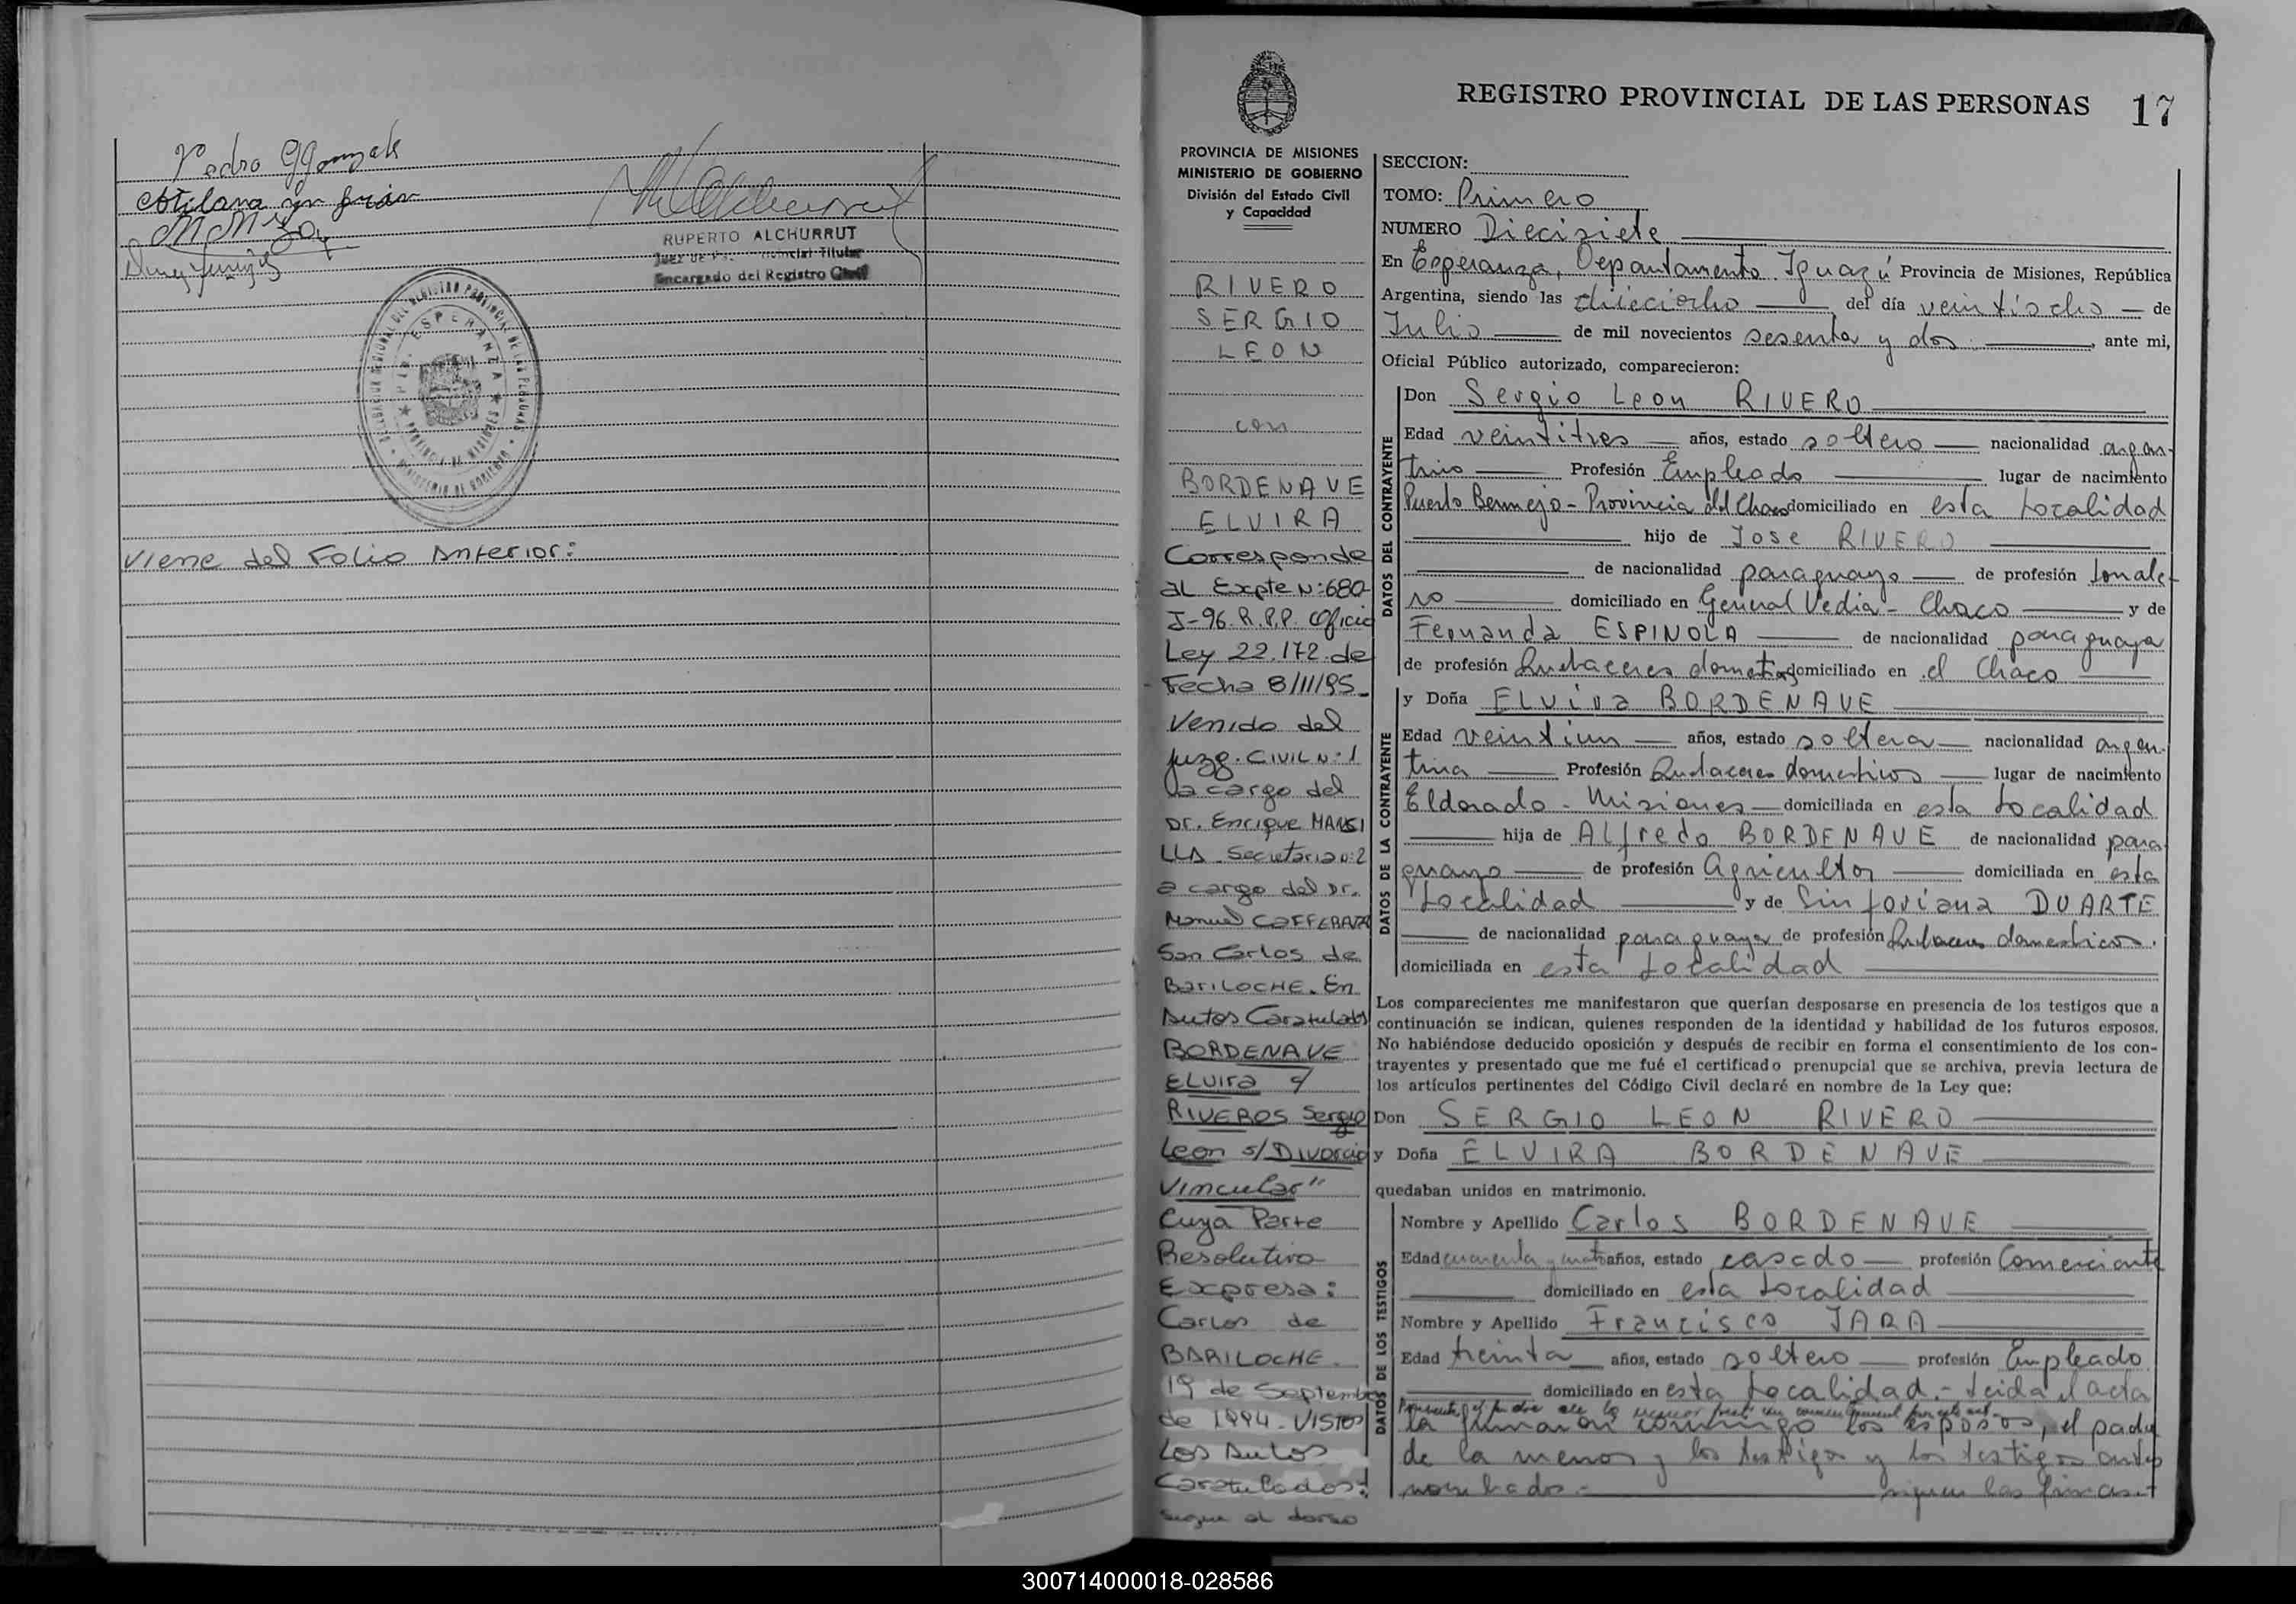 Pedro G Gonzalez
RUPERTO ALCHURRUT
Encargado del Registro Civil
ESPERANZA
PROVINCIA DE MISIONES
Viene del Folio Anterior:
REGISTRO PROVINCIAL DE LAS PERSONAS 17
PROVINCIA DE MISIONES
MINISTERIO DE GOBIERNO
División del Estado Civil
y Capacidad
RIVERO
SERGIO
LEON
con
BORDENAVE
ELVIRA
Corresponde
al Expte N:680-
J-96. R.P.P. Oficio
Ley 22.172 de
Fecha 8/11/95_
Venido del
Juzg. CIVIL N:1
a cargo del
Dr. Enrique MANSI
LLA Secretaria n:2
a cargo del Dr.
Manuel CAFFERATA
San Carlos de
BARILOCHE. En
Autos Caratulados
BORDENAVE
ELVIRA c/
RIVEROS Sergio
Leon s/ Divorcio
Vincular"
Cuya Parte
Resolutiva
Expresa:
Carlos de
BARILOCHE.
19 de Septiembre
de 1994. VISTOS
Los Autos
Caratulados:
sigue al dorso
SECCION:
TOMO: Primero
NUMERO Diecisiete
En Esperanza, Departamento Iguazú Provincia de Misiones, República
Argentina, siendo las dieciocho del día veintiocho de
Julio de mil novecientos sesenta y dos, ante mi,
Oficial Público autorizado, comparecieron:
DATOS DEL CONTRAYENTE
Don Sergio Leon RIVERO
Edad veintitres años, estado soltero nacionalidad argen-
tino Profesión Empleado lugar de nacimiento
Puerto Bermejo - Provincia del Chaco domiciliado en esta Localidad
hijo de Jose RIVERO
de nacionalidad paraguayo de profesión Jornale-
ro domiciliado en General Vedia - Chaco y de
Fernanda ESPINOLA de nacionalidad paraguaya
de profesión Quehaceres domesticos domiciliado en el Chaco
DATOS DE LA CONTRAYENTE
y Doña ELvira BORDENAVE
Edad veintiun años, estado soltera nacionalidad argen-
tina Profesión Quehaceres domesticos lugar de nacimiento
Eldorado - Misiones domiciliada en esta Localidad
hija de ALfredo BORDENAVE de nacionalidad para-
guayo de profesión Agricultor domiciliada en esta
Localidad y de Sinforiana DUARTE
de nacionalidad paraguaya de profesión Quehaceres domesticos.
domiciliada en esta Localidad
Los comparecientes me manifestaron que querían desposarse en presencia de los testigos que a
continuación se indican, quienes responden de la identidad y habilidad de los futuros esposos.
No habiéndose deducido oposición y después de recibir en forma el consentimiento de los con-
trayentes y presentado que me fué el certificado prenupcial que se archiva, previa lectura de
los artículos pertinentes del Código Civil declaré en nombre de la Ley que:
Don SERGIO LEON RIVERO
y Doña ELVIRA BORDENAVE
quedaban unidos en matrimonio.
DATOS DE LOS TESTIGOS
Nombre y Apellido Carlos BORDENAVE
Edad cuarenta y cuatro años, estado casado profesión Comerciante
domiciliado en esta Localidad
Nombre y Apellido Francisco JARA
Edad treinta años, estado soltero profesión Empleado
domiciliado en esta Localidad.- Leida el acta
la firmaron conmigo los esposos, el padre
de la menor y los testigos y los testigos antes
nombrados.- siguen las firmas.-
300714000018-028586